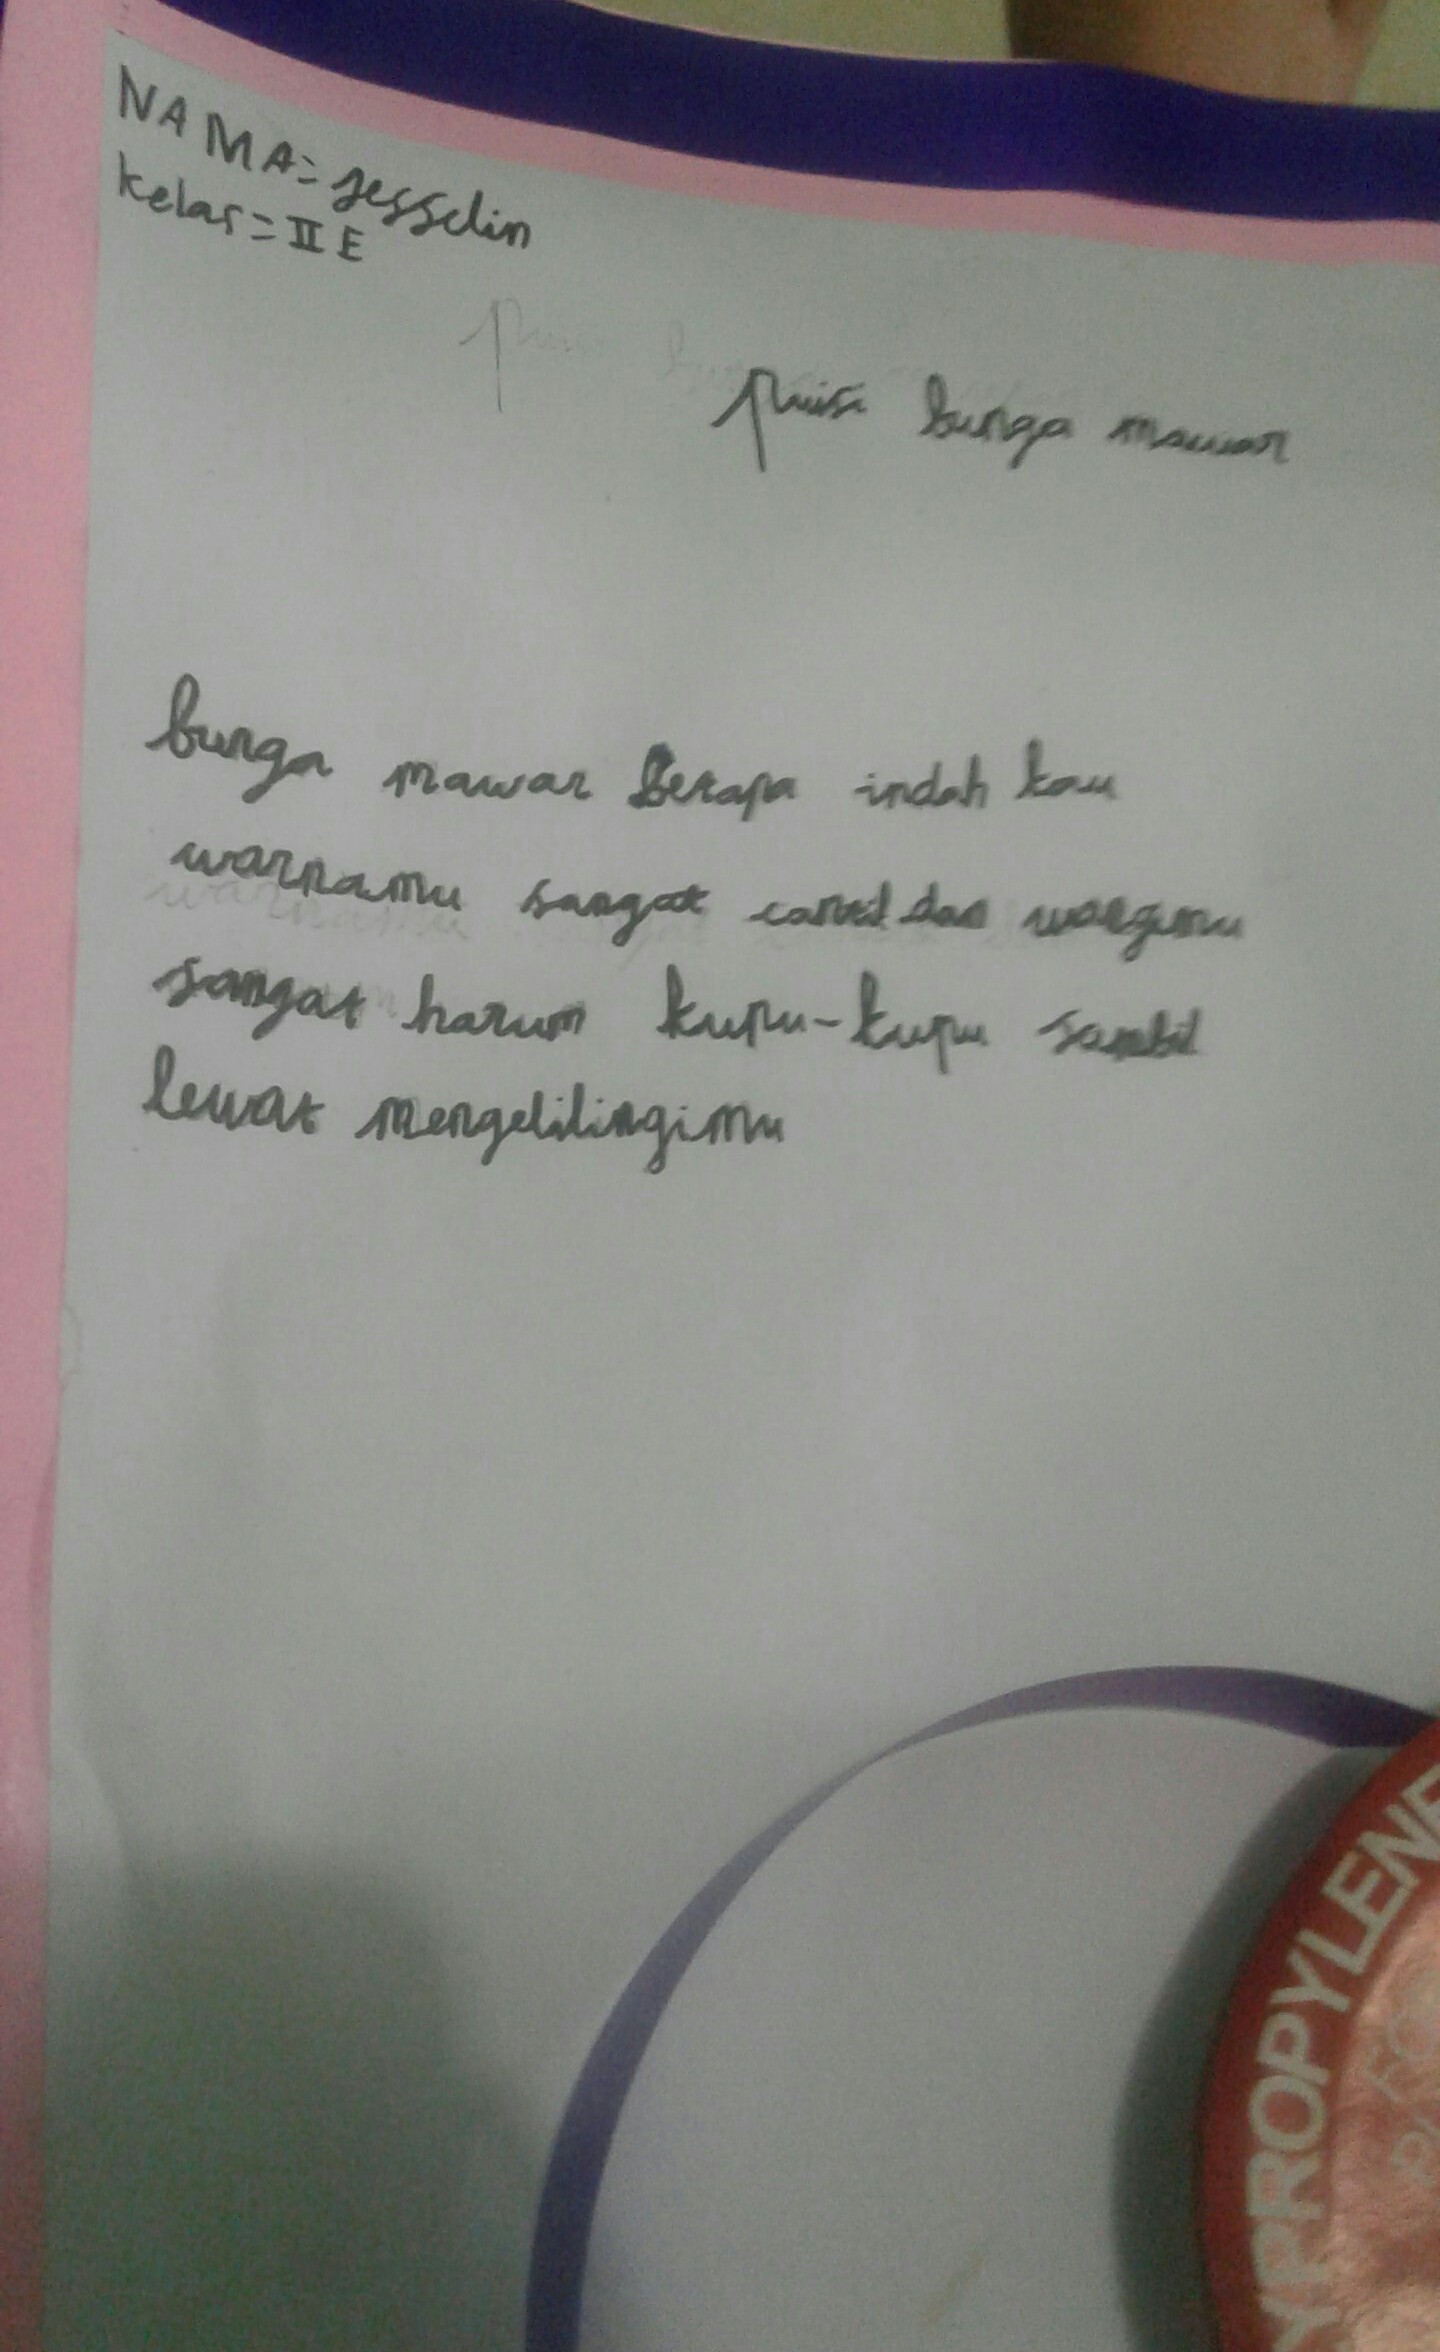 NAMA= jesselin
kelas= II E
puisi bunga mawar
bunga mawar Betapa indah kau
warnamu sangat cantil dan wangimu
sangat harum kupu-kupu sambil
lewat mengelilingimu
YPROPYLENE
FO